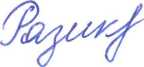 Разикв